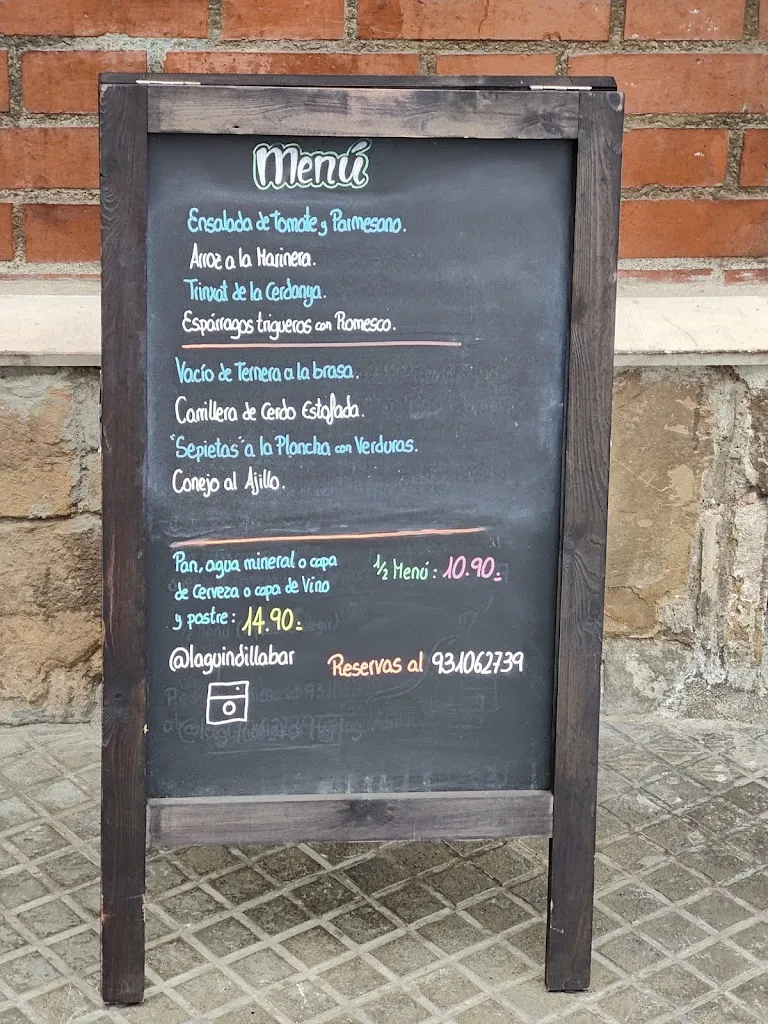 Menú
Ensalada de Tomate y Parmesano.
Arroz a la Marinera.
Trinxat de la Cerdanya.
Espárragos trigueros con Romesco.
Vacío de Ternera a la brasa.
Carrillera de Cerdo Estofada.
"Sepietas" a la Plancha con Verduras.
Conejo al Ajillo.
Pan, agua mineral o copa
de cerveza o copa de Vino
y postre: 14.90.-
1/2 Menú: 10.90.-
@laguindillabar
Reservas al 931062739